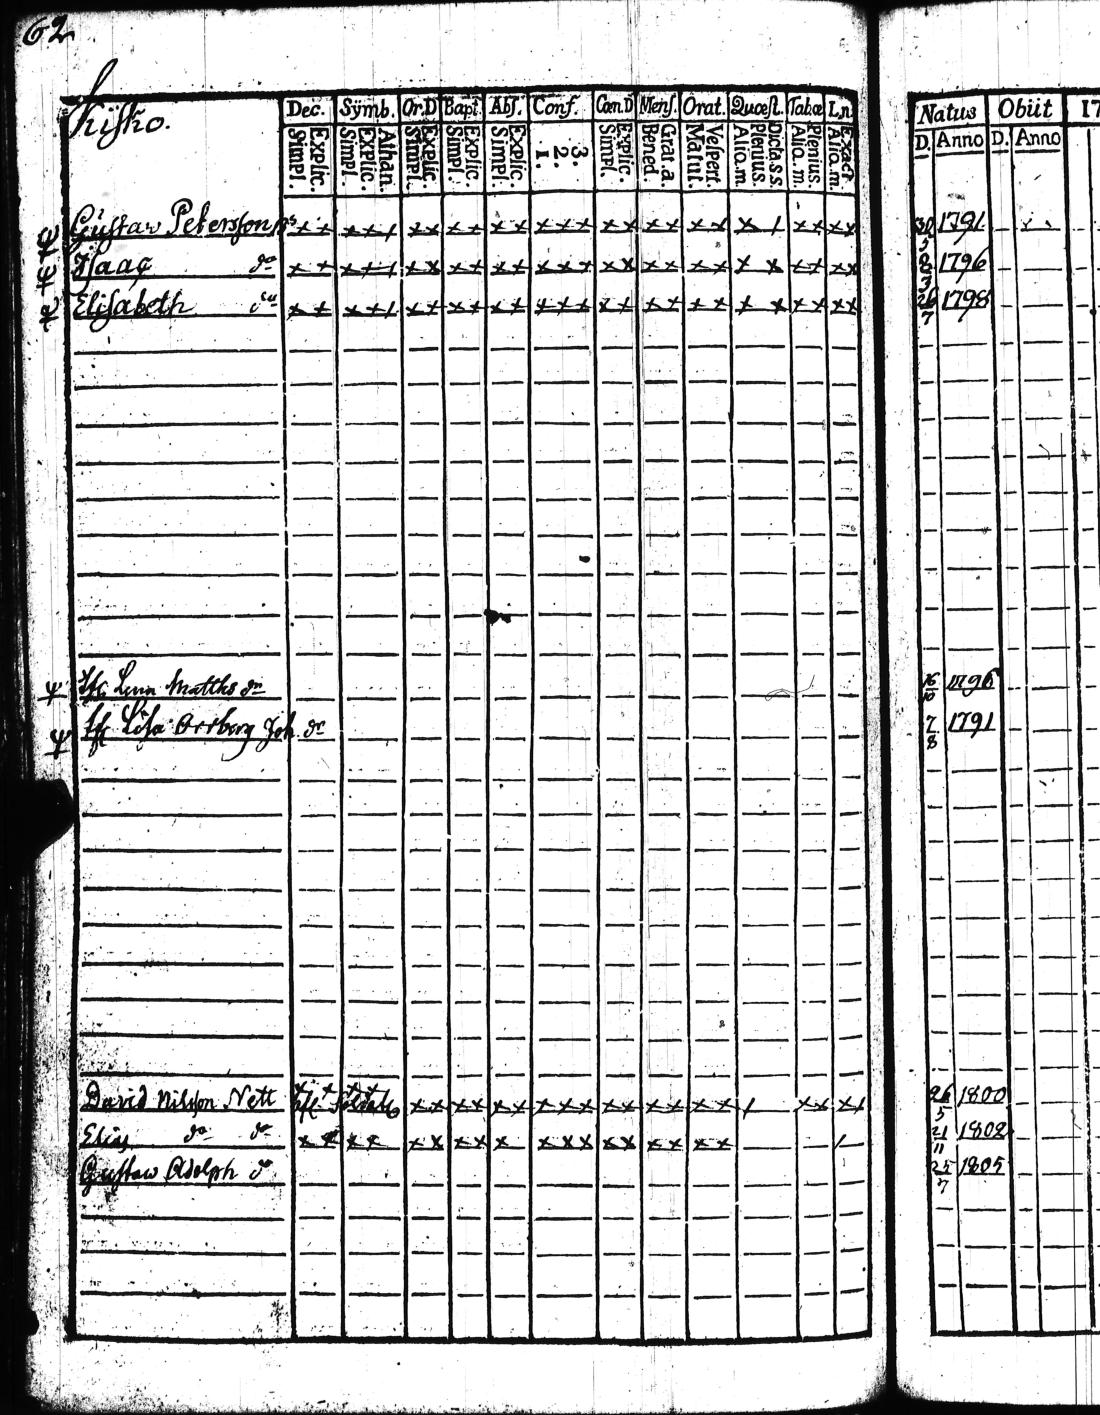 62
Kisko.
Dec. Symb. Or.D Bapt. Abs. Conf. Cœn.D Mens. Orat. Quæst. Tabæ L.n.
Simpl. Explic. Simpl. Explic. Athan. Simpl. Explic. Simpl. Explic. Simpl. Explic. 1. 2. 3. Simpl. Explic. Bened. Grat.a. Matut. Vespert. Aliq.m Plenius. Dicta.s.s. Aliq.m Plenius. Aliq.m. Exact
Natus Obiit 17
D. Anno D. Anno
Gustaw Petersson 30/5 1791
Isaac do 8/3 1796
Elisabeth 26/7 1798
Lena Matths dr 16/10 1796
Lisa Joh. dr 7/8 1791
David Nilsson Nett 26/5 1800
Elias do do 21/11 1802
Gustaw Adolph do 25/7 1805